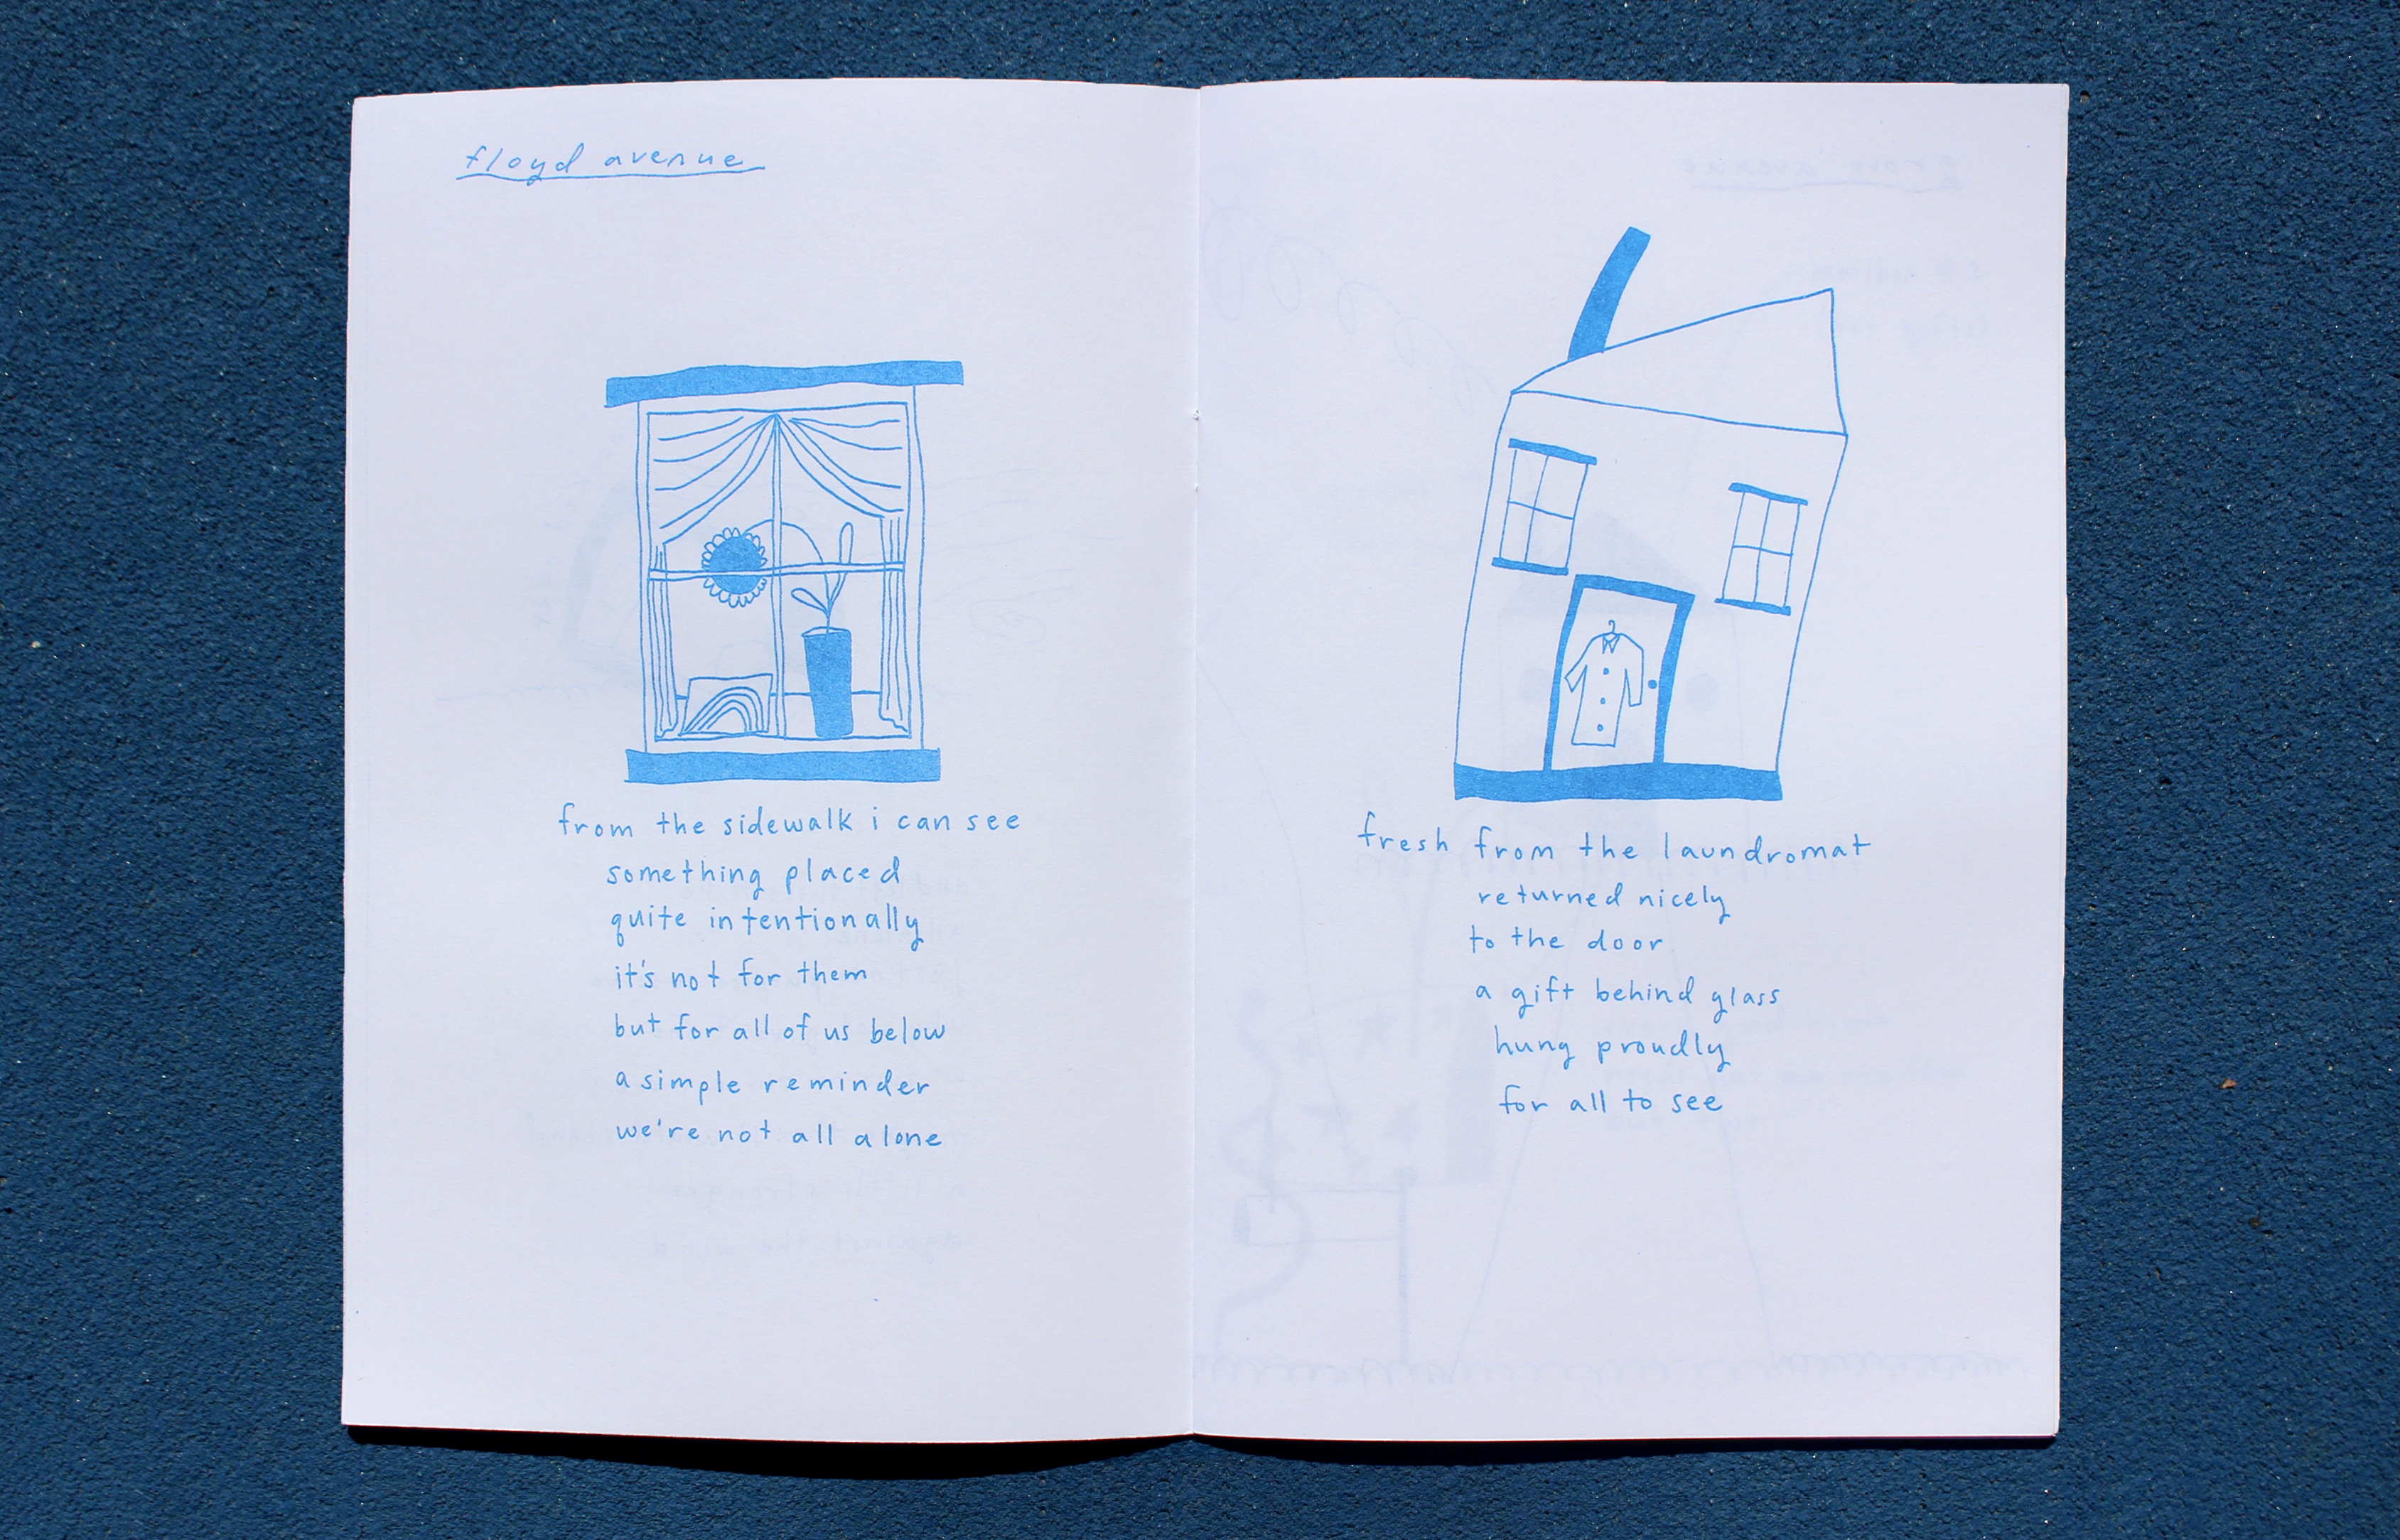 floyd avenue
from the sidewalk i can see
something placed
quite intentionally
it's not for them
but for all of us below
a simple reminder
we're not all alone
fresh from the laundromat
returned nicely
to the door
a gift behind glass
hung proudly
for all to see